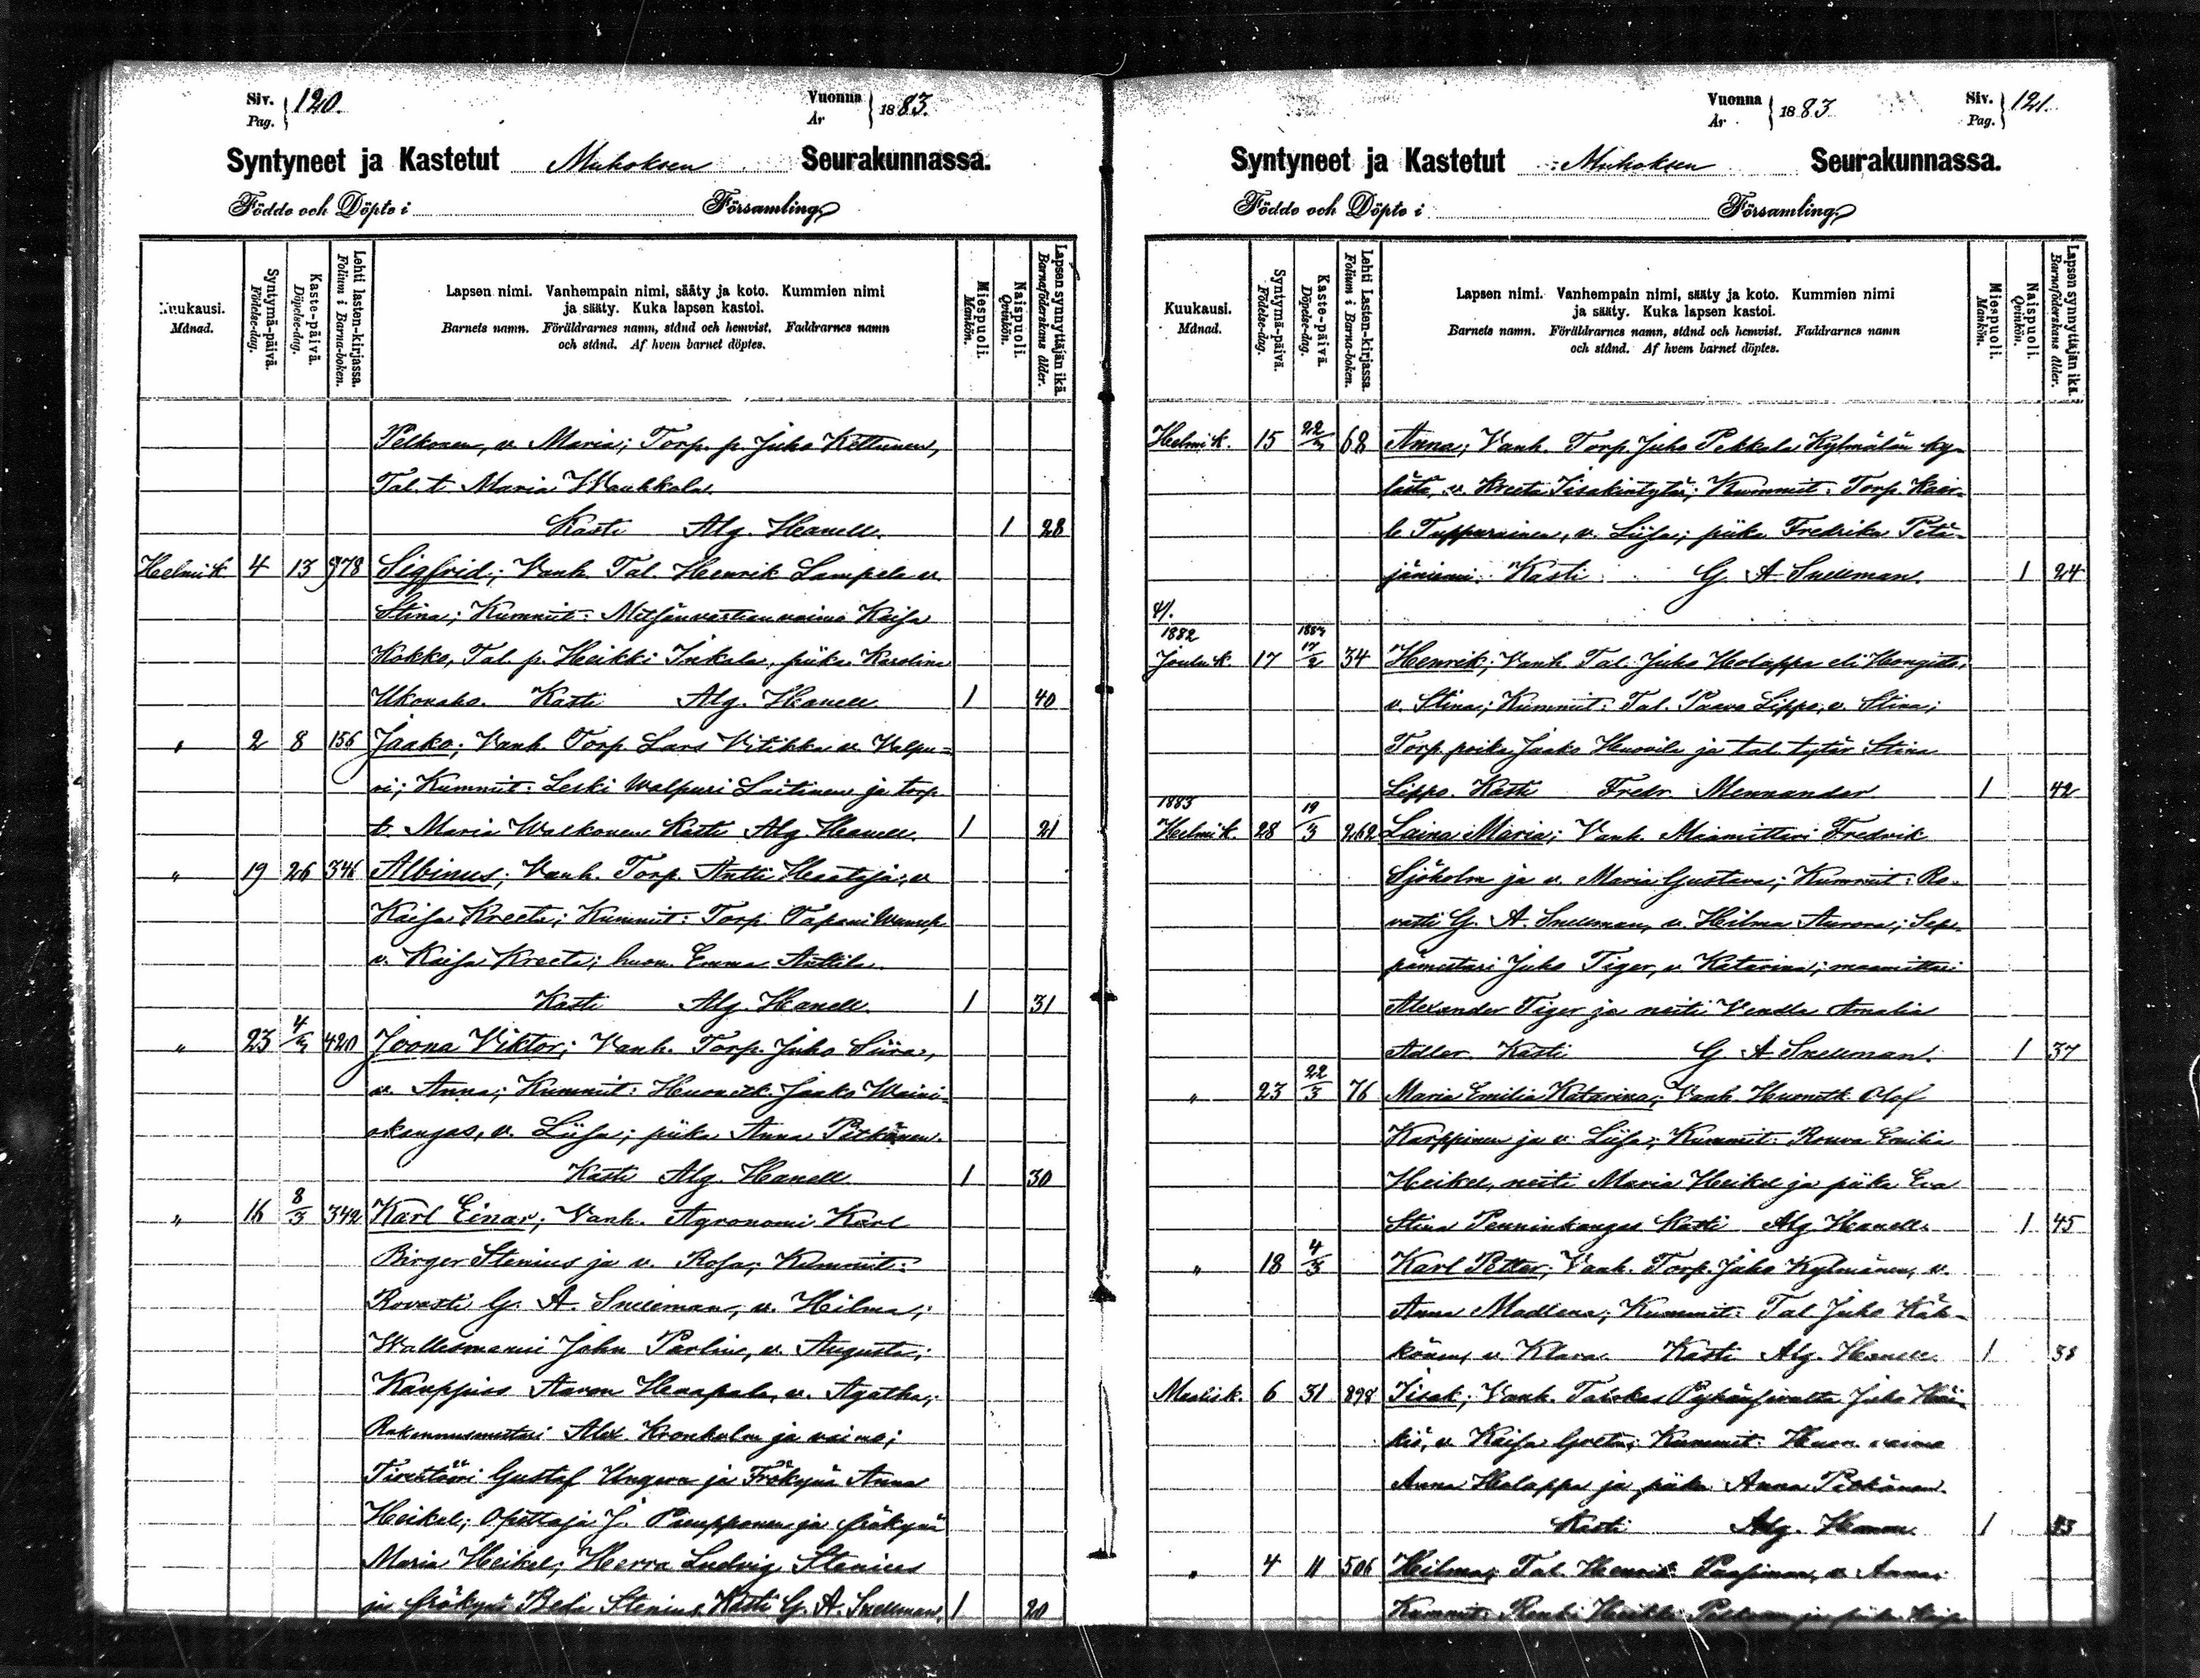 Siv. Pag. } 120.
Vuonna År } 1883.
Syntyneet ja Kastetut Muhoksen Seurakunnassa.
Födde och Döpte i Församling
Kuukausi. Månad.
Syntymä-päivä. Födelse-dag.
Kaste-päivä. Döpelse-dag.
Lehti lasten-kirjassa. Folium i Barna-boken.
Lapsen nimi. Vanhempain nimi, sääty ja koto. Kummien nimi
ja sääty. Kuka lapsen kastoi.
Barnets namn. Föräldrarnes namn, stånd och hemvist. Faddrarnes namn
och stånd. Af hvem barnet döptes.
Miespuoli. Mankön.
Naispuoli. Qvinkön.
Lapsen synnyttäjän ikä. Barnaföderskans ålder.
Pelkonen, v. Maria; Torp. p. Juho Kettunen,
Tal. t. Maria
Kasti Alg. Hanell. 1 28
Helmik 4 13 978 Sigfrid; Vanh. Tal. Henrik Lampela v.
Stina; Kummit: Metsänvartian vaimo Kaisa
Kokko, Tal. p. Heikki Inkala, piika Karolina
Ukonaho. Kasti Alg. Hanell 1 40
" 2 8 156 Jaako; Vanh. Torp. Lars Vitikka v. Valpu=
ri; Kummit: Leski Walpuri Laitinen ja torp.
t. Maria Walkonen Kasti Alg. Hanell. 1 21
" 19 26 346 Albinus; Vanh. Torp. Antti Haataja, v.
Kaisa Kreeta; Kummit: Torp. Tapani
v. Kaisa Kreeta; huon. Emma Anttila.
Kasti Alg. Hanell. 1 31
" 23 4/3 420 Joona Viktor; Vanh. Torp. Juho Siira,
v. Anna; Kummit: Huonetk. Jaako Waini-
okangas, v. Liisa; piika Anna Pitkänen.
Kasti Alg. Hanell 1 30
" 16 8/3 342 Karl Einar; Vanh. Agronomi Karl
Birger Stenius ja v. Rosa; Kummit:
Rovasti G. A. Snellman, v. Hilma;
Wallesmanni John Parlin, v. Augusta;
Kauppias Aaron Haapala, v. Agatha;
Rakennusmestari Alex. Kronholm ja vaimo;
Tirehtööri Gustaf Ungern ja Frökynä Anna
Heikel; Opettaja J. ja frökynä
Maria Heikel; Herra Ludvig Stenius
ja frökynä Beda Stenius. Kasti G. A. Snellman. 1 20
Vuonna År } 1883
Siv. Pag. } 121.
Syntyneet ja Kastetut Muhoksen Seurakunnassa.
Födde och Döpte i Församling
Kuukausi. Månad.
Syntymä-päivä. Födelse-dag.
Kaste-päivä. Döpelse-dag.
Lehti Lasten-kirjassa. Folium i Barna-boken.
Lapsen nimi. Vanhempain nimi, sääty ja koto. Kummien nimi
ja sääty. Kuka lapsen kastoi.
Barnets namn. Föräldrarnes namn, stånd och hemvist. Faddrarnes namn
och stånd. Af hvem barnet döptes.
Miespuoli. Mankön.
Naispuoli. Qvinkön.
Lapsen synnyttäjän ikä. Barnaföderskans ålder.
Helmik. 15 22/3 68 Anna; Vanh. Torp. Juho Pekkala Kylmälän ky-
lästä, v. Kreeta Iisakintytär; Kummit: Torp. Kaar-
le Tuppurainen, v. Liisa; piika Fredrika Petä-
jäniemi. Kasti G. A Snellman. 1 24
1882 1883
Jouluk. 17 17/2 34 Henrik; Vanh. Tal. Juho Holappa eli
v. Stina; Kummit: Tal. Paavo Lippo, v. Stina;
Torp. poika Jaako Huovila ja tal. tytär Stina
Lippo. Kasti Fredr. Mennander 1 42
1883
Helmik. 28 19/3 262 Laina Maria; Vanh. Maamittari Fredrik
Sjöholm ja v. Maria Gustava; Kummit: Ro-
vasti G. A. Snellman, v. Hilma Aurora; Sep-
pämestari Juho Tiger, v. Katarina; maamittari
Alexander Tiger ja neiti Vendla Amalia
Adler. Kasti G. A Snellman. 1 37
" 23 22/3 76 Maria Emilia Katarina; Vanh. Huonetk. Olof
Karppinen ja v. Liisa; Kummit: Rouva Emilia
Heikel, neiti Maria Heikel ja piika Eva
Stina Penninkangas Kasti Alg. Hanell. 1 45
" 18 4/3 Karl Petter; Vanh. Torp. Juho Kylmänen, v.
Anna Madlena; Kummit: Tal. Juho Käh-
könen, v. Klara. Kasti Alg. Hanell. 1 38
Maalisk. 6 31 898 Iisak; Vanh. Talokas Juho Häi-
kiö, v. Kaisa Greta; Kummit: Huon. vaimo
Anna Holappa ja piika Anna Pitkänen.
Kasti Alg. Hanell 1
" 4 11 506 Hilma; Tal. Henrik v. Anna;
Kummit: Renki Heikki Pelkonen ja piika